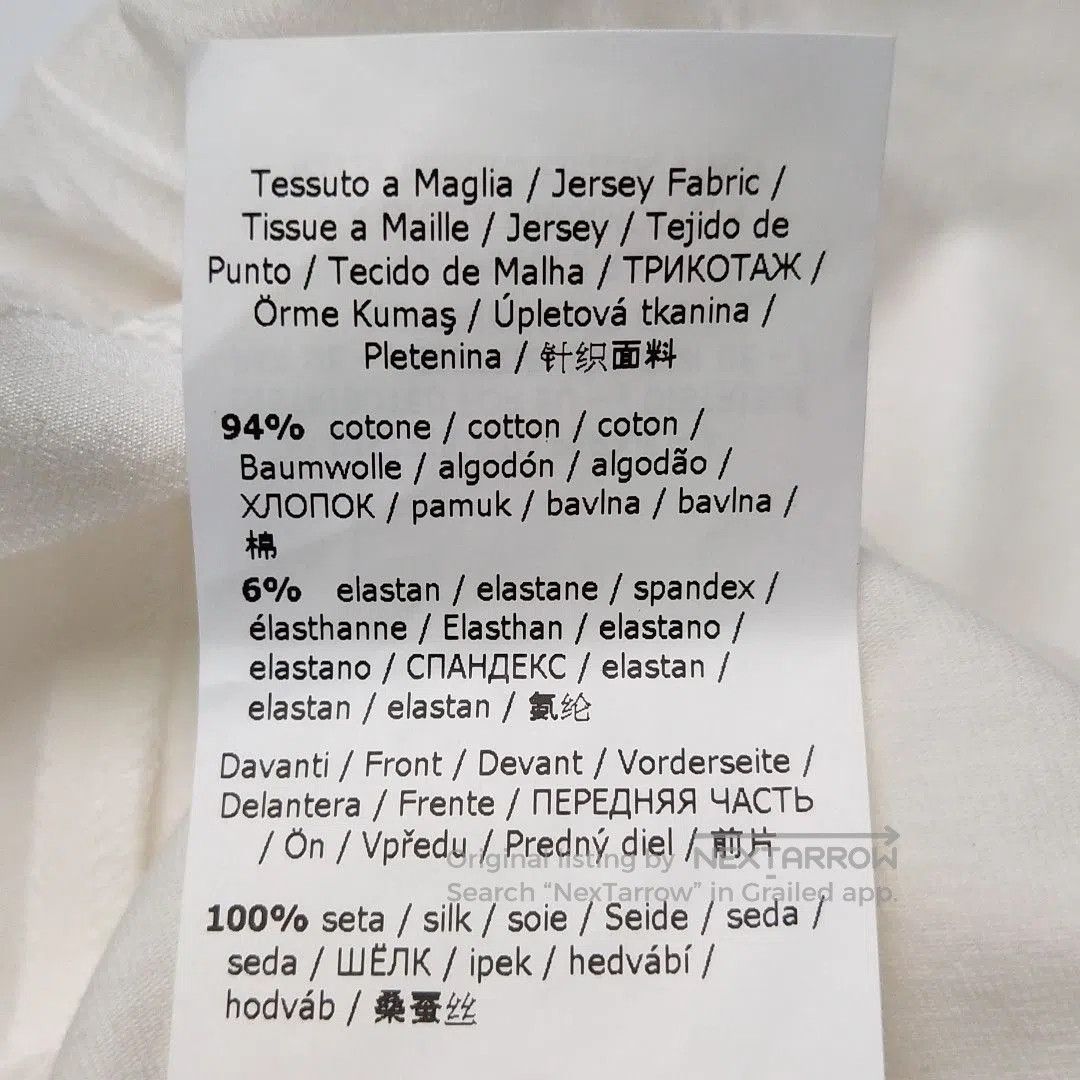 Tessuto a Maglia / Jersey Fabric /
Tissue a Maille / Jersey / Tejido de
Punto / Tecido de Malha / ТРИКОТАЖ /
Örme Kumaş / Úpletová tkanina /
Pletenina / 针织面料
94% cotone / cotton / coton /
Baumwolle / algodón / algodão /
ХЛОПОК / pamuk / bavlna / bavlna /
棉
6% elastan / elastane / spandex /
élasthanne / Elasthan / elastano /
elastano / СПАНДЕКС / elastan /
elastan / elastan / 氨纶
Davanti / Front / Devant / Vorderseite /
Delantera / Frente / ПЕРЕДНЯЯ ЧАСТЬ
/ Ön / Vpředu / Predný diel / 前片
Original listing by NEXTARROW
Search “NexTarrow” in Grailed app.
100% seta / silk / soie / Seide / seda /
seda / ШЁЛК / ipek / hedvábí /
hodváb / 桑蚕丝